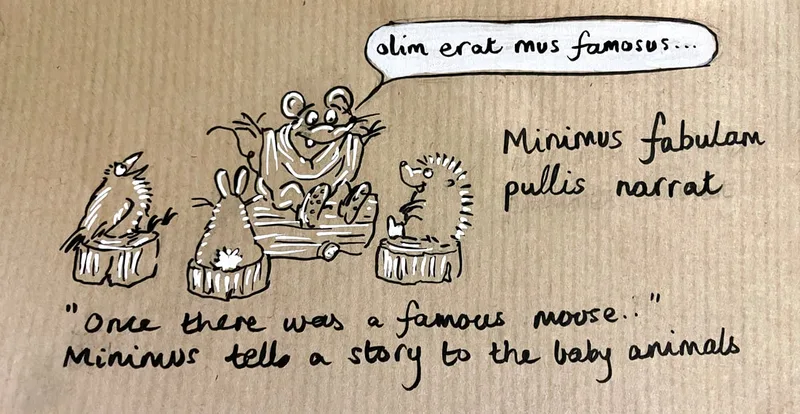 olim erat mus famosus...
Minimus fabulam
pullis narrat
"Once there was a famous mouse.."
Minimus tells a story to the baby animals